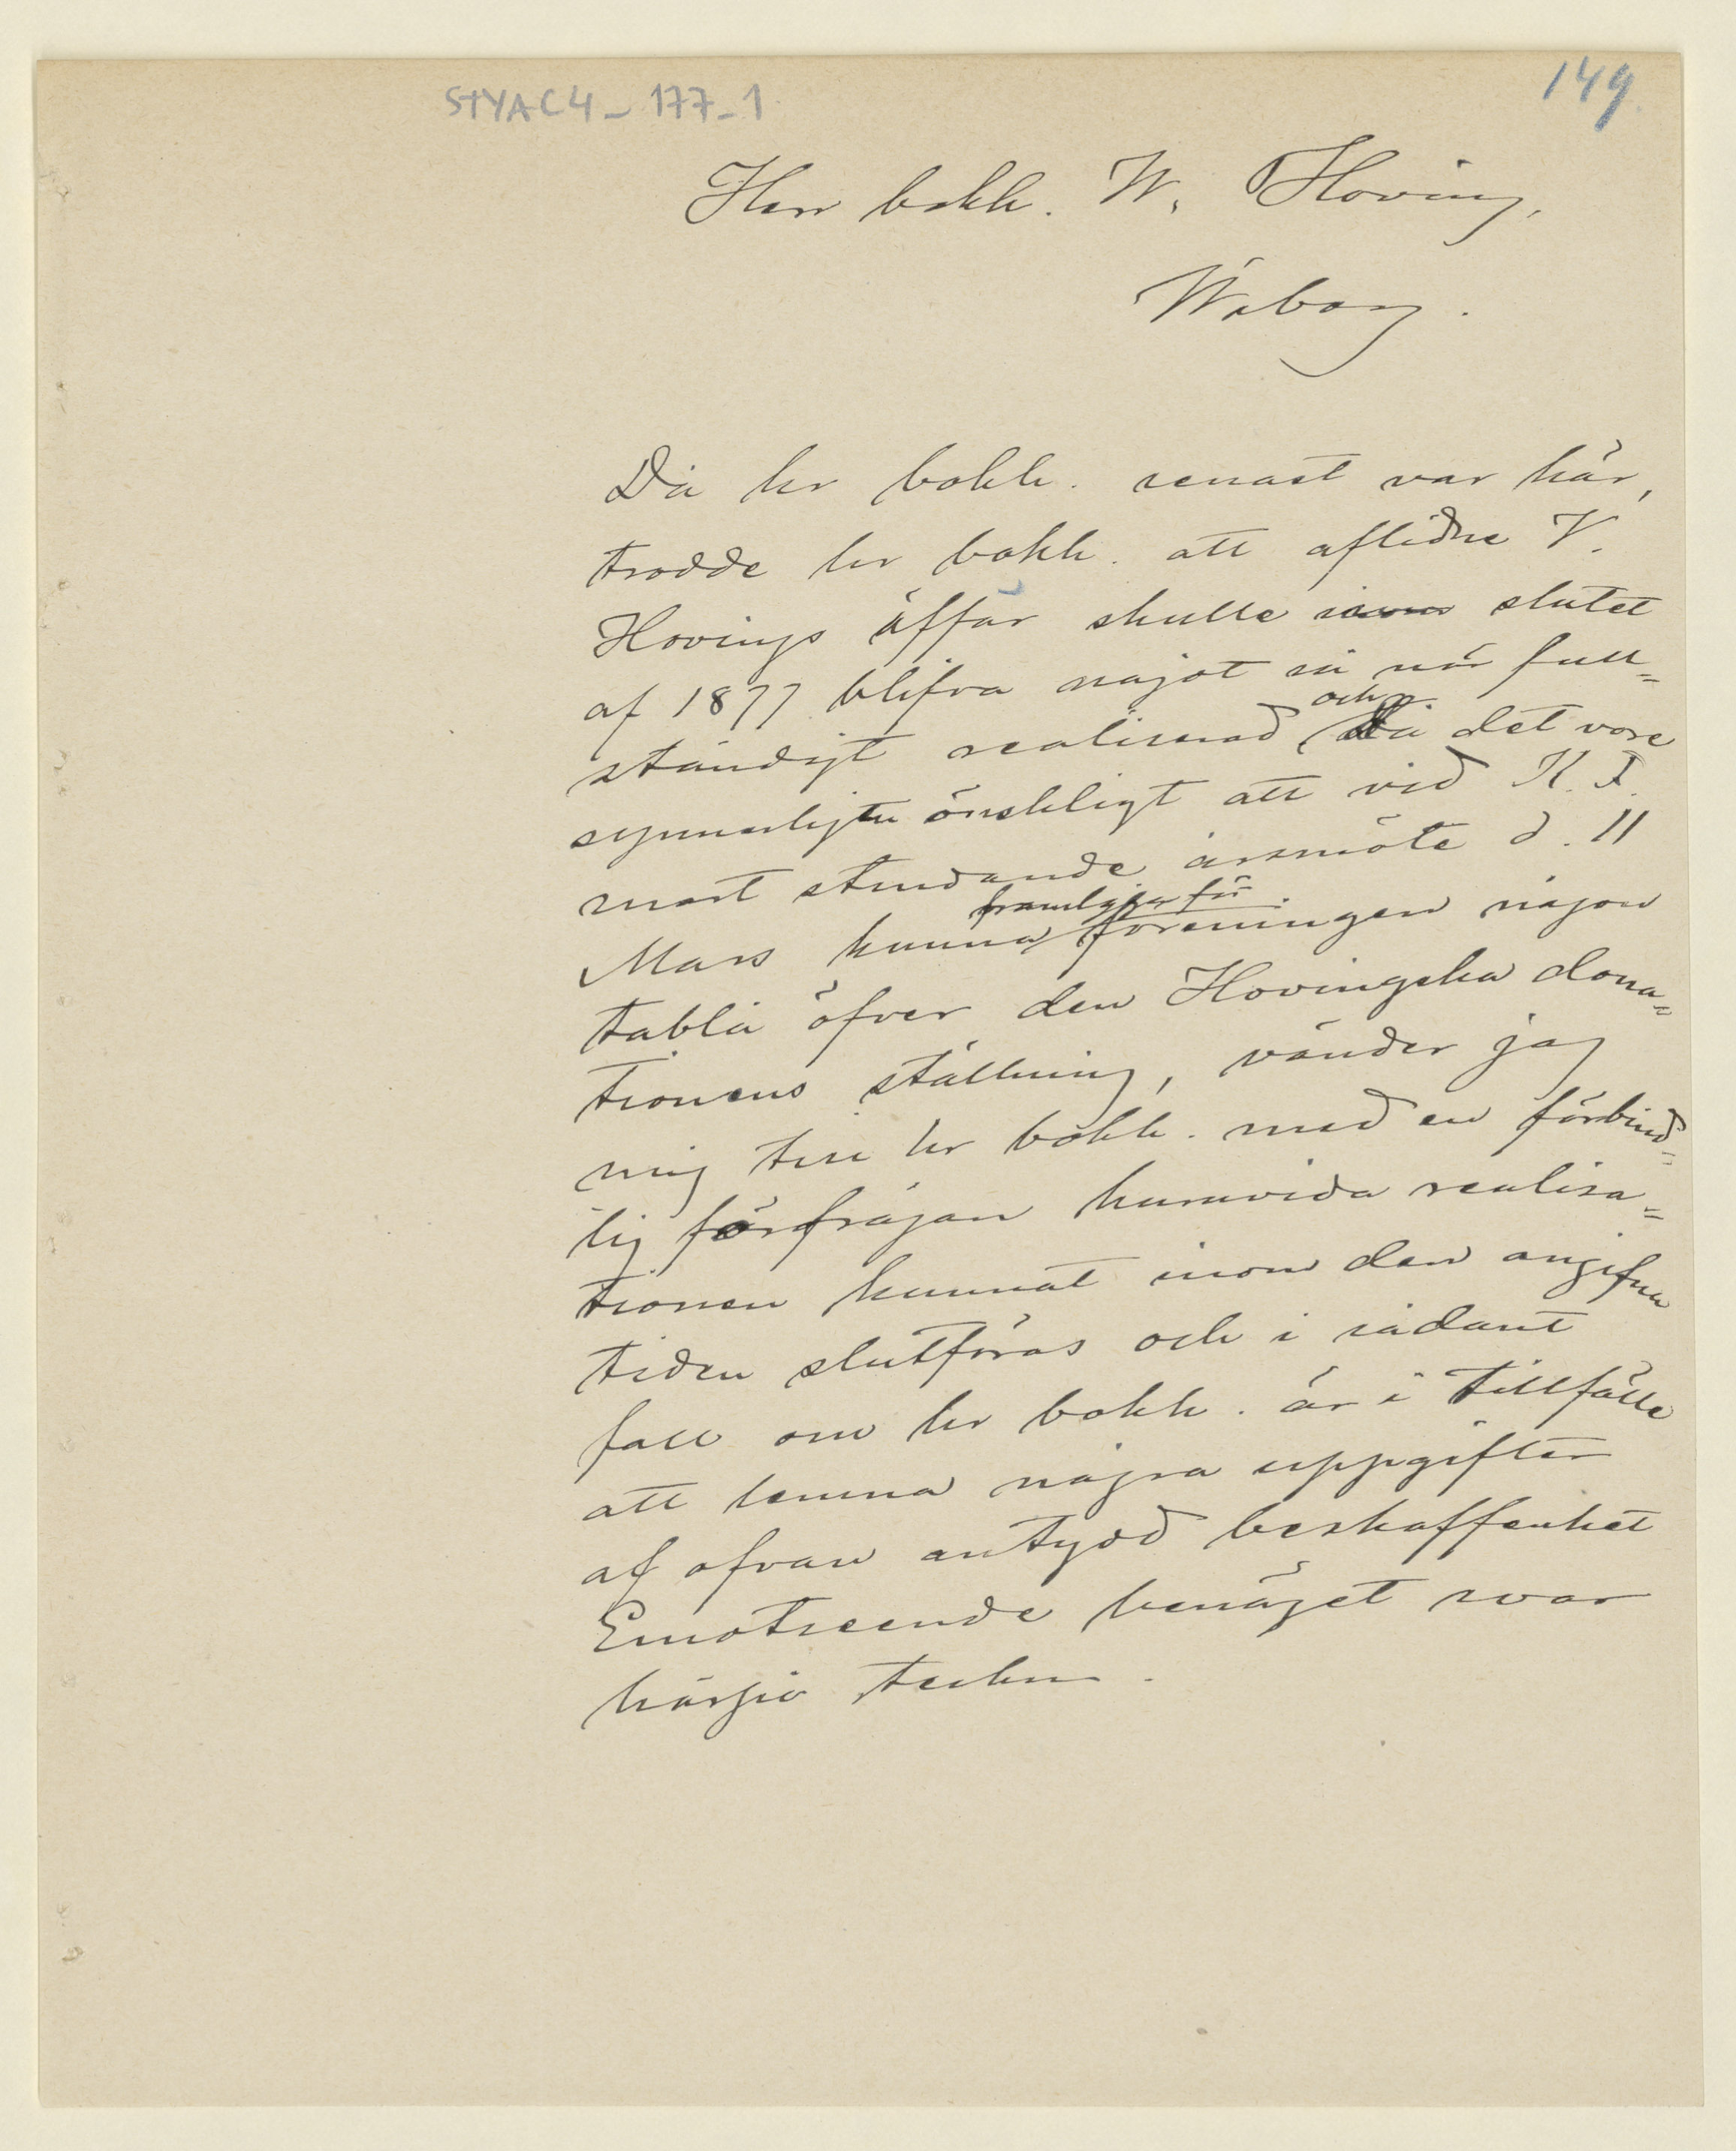 STYAC4_177_1
149.
Herr bokh. W. Hoving,
Wiborg.
Då hr bokh. senast var här,
trodde hr bokh. att aflidne V.
Hovings affär skulle inom slutet
af 1877 blifva något så när full=
ständigt realiserad och
då det vore
synnerligen önskligt att vid K. F.
näst stundande årsmöte d. 11
framlägga för
Mars kunna föreningen någon
tablå öfver den Hovingska dona=
tionens ställning, vänder jag
mig till hr bokh. med en förbind=
lig förfrågan huruvida realisa=
tionen kunnat inom den angifna
tiden slutföras och i sådant
fall om hr bokh. är i tillfälle
att lemna några uppgifter
af ofvan antydd beskaffenhet
Emotseende benäget svar
härpå tecknar